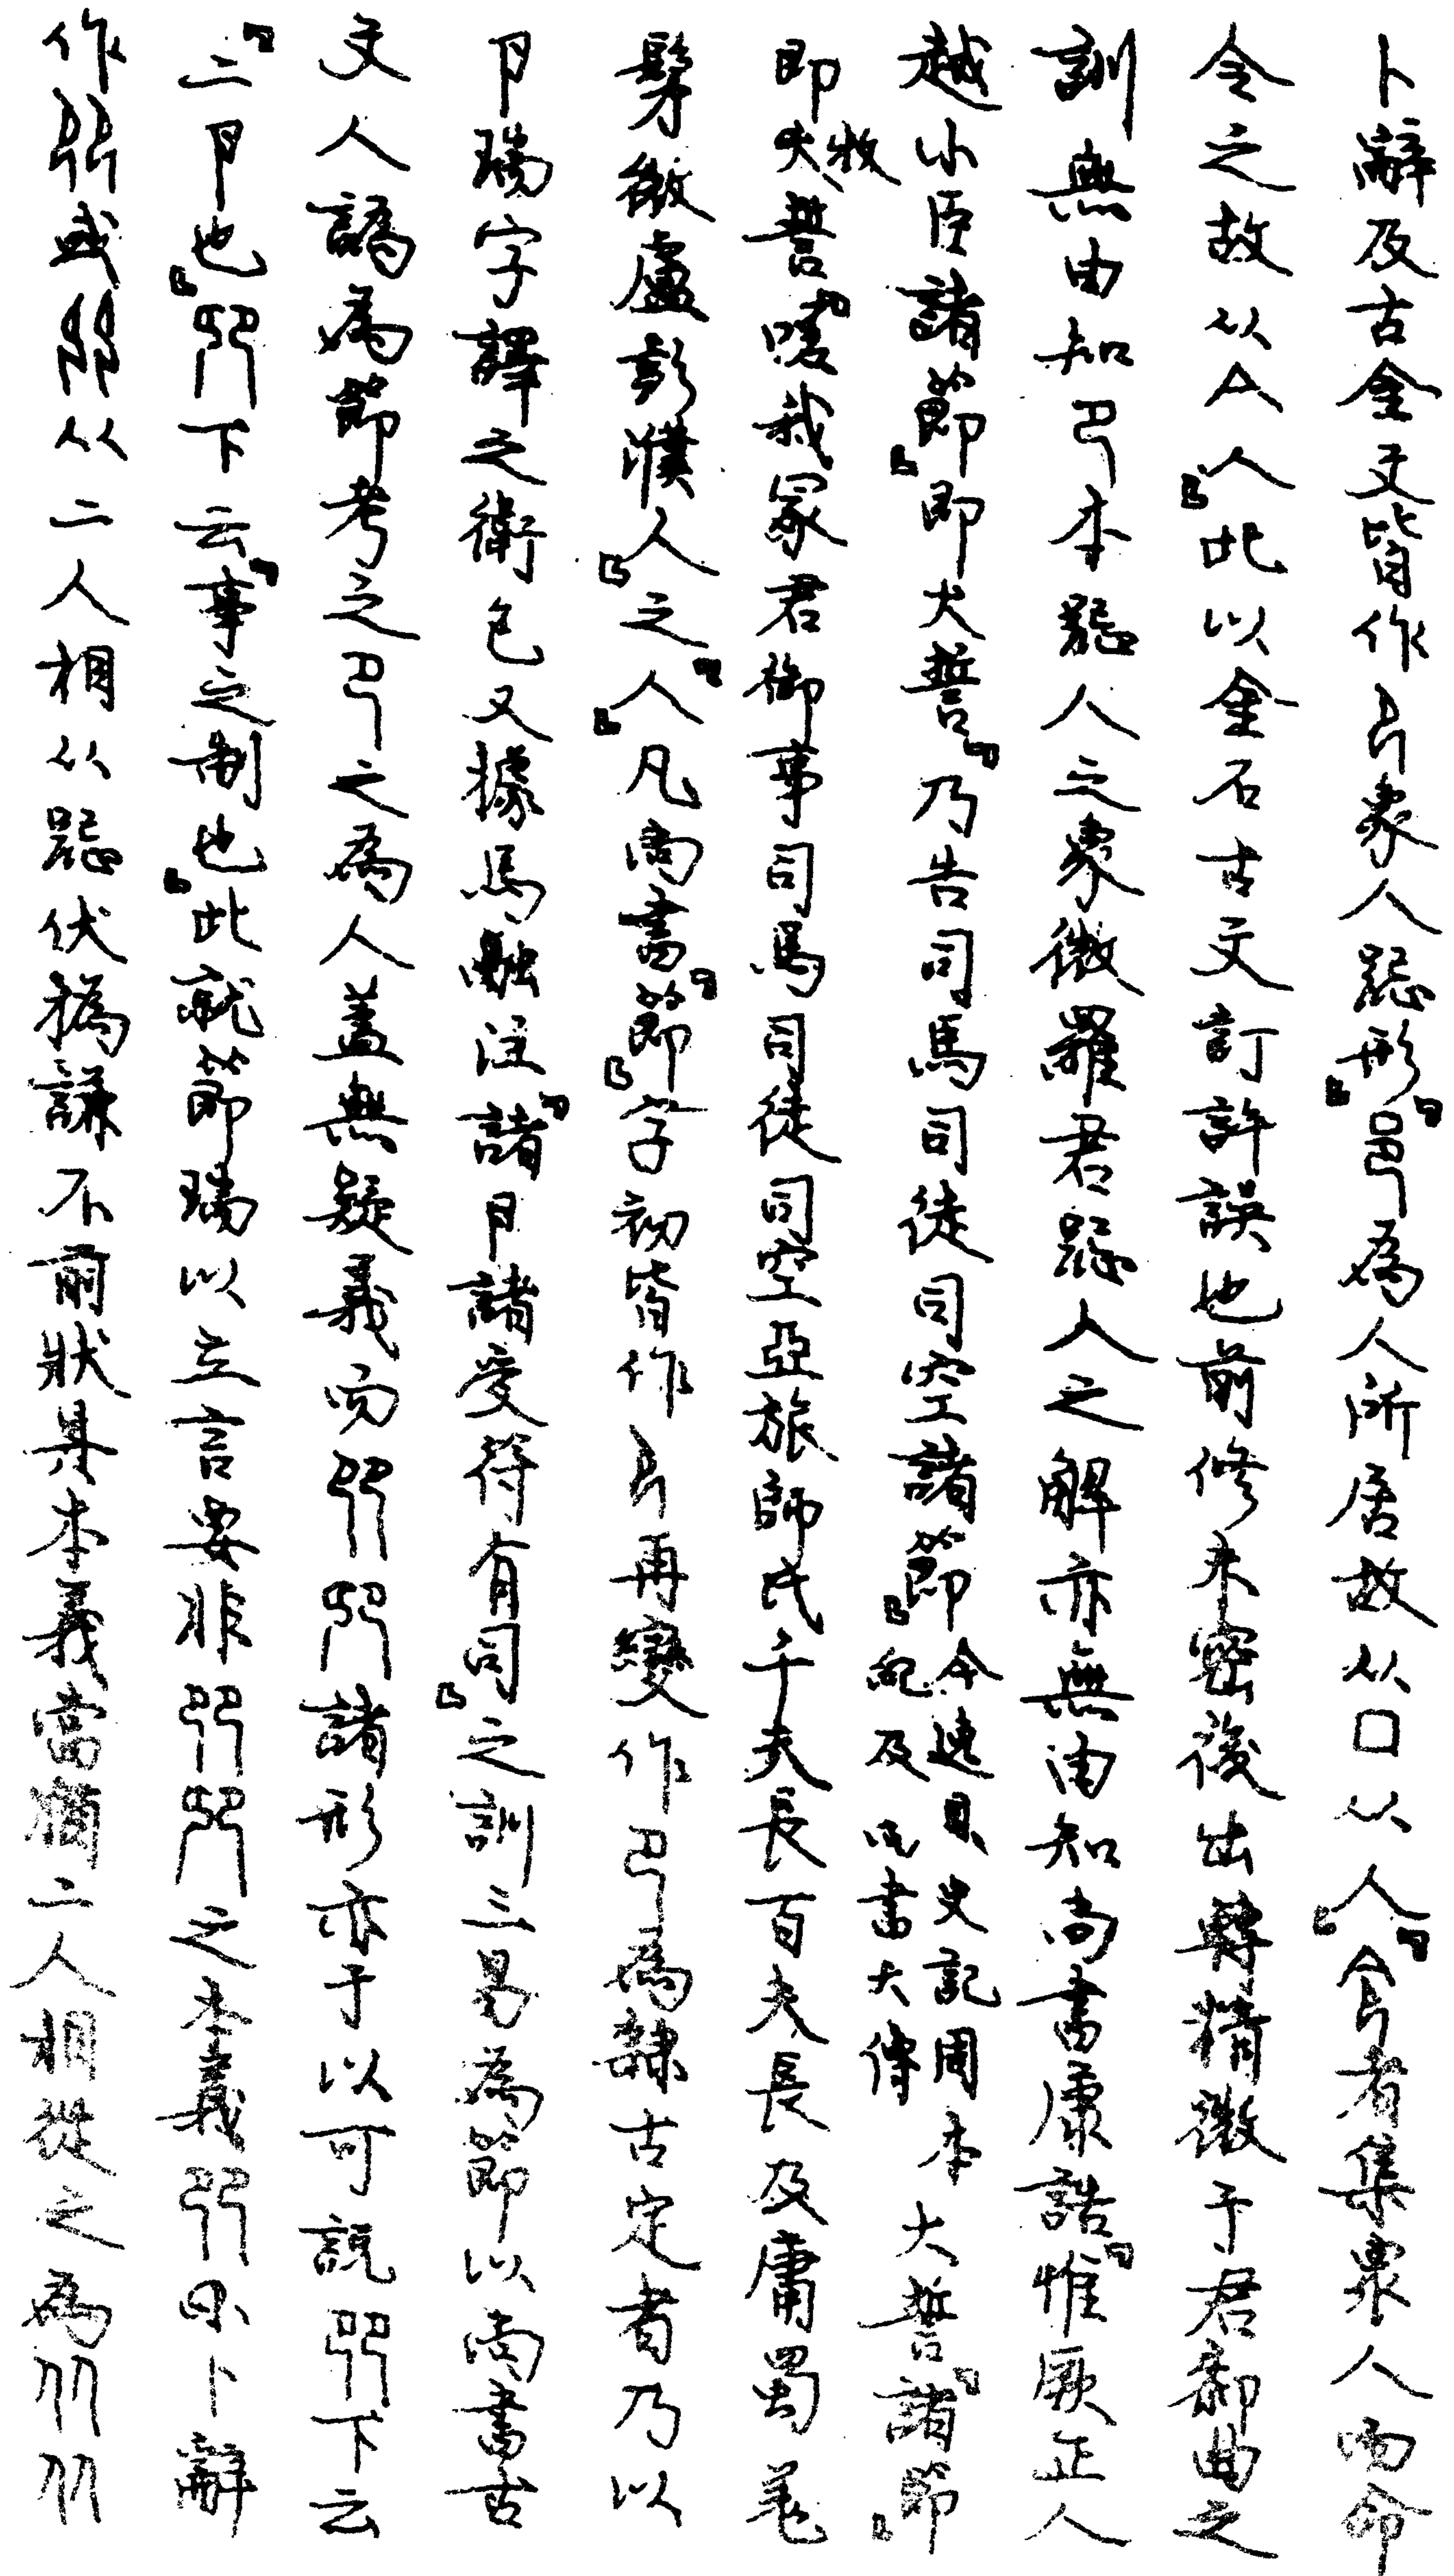 卜辭及古金文皆作𠂎象人跽形」「邑爲人所居故从口从人」「令者集衆人而命
令之故从亼人」此以金石古文訂許誤也前修未密後出轉精微于君卻曲之
訓無由知卪本跽人之象微羅君跽人之解亦無由知尚書康誥「惟厥正人
越小臣諸節」即大誓「乃告司馬司徒司空諸節」今逸見史記周本紀及尚書大傳大誓「諸節」
即牧誓「嗟我冢君御事司馬司徒司空亞旅師氏千夫長百夫長及庸蜀羌
髳微盧彭濮人」之「人」凡尚書「節」字初皆作𠂎再變作卪爲隸古定者乃以
卪瑞字譯之衛包又據馬融注「諸卪諸受符有司」之訓三易爲節以尚書古
文人譌爲節考之卪之爲人蓋無疑義而𠨎𠨍諸形亦于以可説𠨎下云
「二卪也」𠨍下云「事之制也」此就節瑞以立言要非𠨎𠨍之本義𠨎卜辭
作𠨎或从二人相从跽伏撝謙不前狀其本義當猶二人相從之爲从从